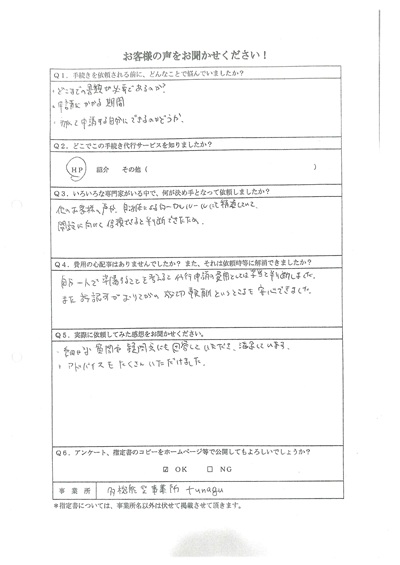 お客様の声をお聞かせください！
Q1．手続きを依頼される前に、どんなことで悩んでいましたか？
・どこまでの書類が必要であるのか？
・申請にかかる期間
・初めて申請する自分にできるのかどうか。
Q2．どこでこの手続き代行サービスを知りましたか？
HP 紹介 その他（ ）
Q3．いろいろな専門家がいる中で、何が決め手となって依頼しましたか？
他のお客様の声が、自治体によるローカルルールにて精通していて、
開設に向けて 信頼できると判断できたため。
Q4．費用の心配事はありませんでしたか？ また、それは依頼時等に解消できましたか？
自分一人で準備することを考えると 代行申請の費用としては妥当と判断しました。
また 許認可がおりてからの 成功報酬ということも安心できました。
Q5．実際に依頼してみた感想をお聞かせください。
・細かな質問や疑問点にも回答していただき、満足しています。
・アドバイスをたくさんいただけました。
Q6．アンケート、指定書のコピーをホームページ等で公開してもよろしいでしょうか？
☑ OK □ NG
事 業 所 多機能型事業所 tunagu
*指定書については、事業所名以外は伏せて掲載させて頂きます。